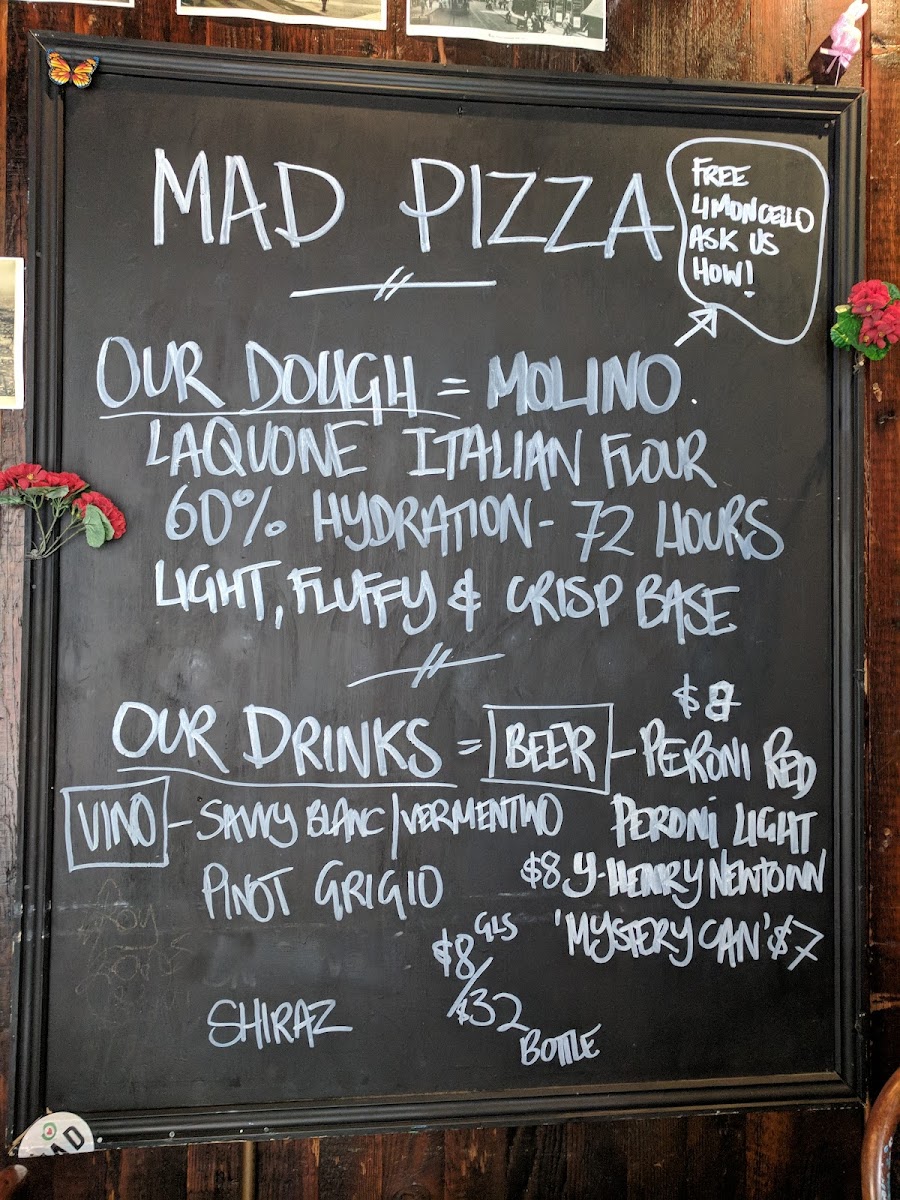 MAD PIZZA
FREE
LIMONCELLO
ASK US
HOW!
OUR DOUGH = MOLINO.
LAQUONE ITALIAN FLOUR
60% HYDRATION - 72 HOURS
LIGHT, FLUFFY & CRISP BASE
OUR DRINKS = BEER - PERONI RED
PERONI LIGHT
$8 Y-HENRY NEWTOWN
'MYSTERY CAN' $7
VINO - SAVVY BLANC/VERMENTINO
PINOT GRIGIO
SHIRAZ
$8 GLS
/
$32
BOTTLE